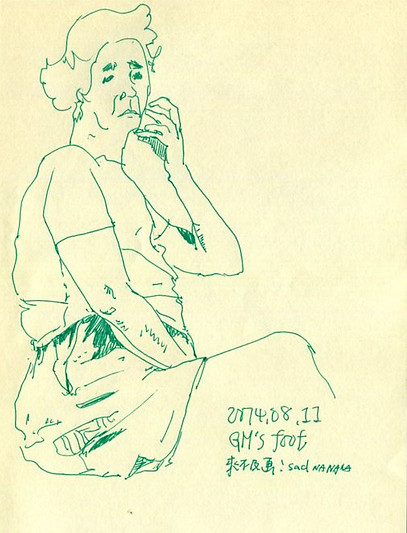 2014.08.11
GM's foot,
來不及畫! sad NANALA